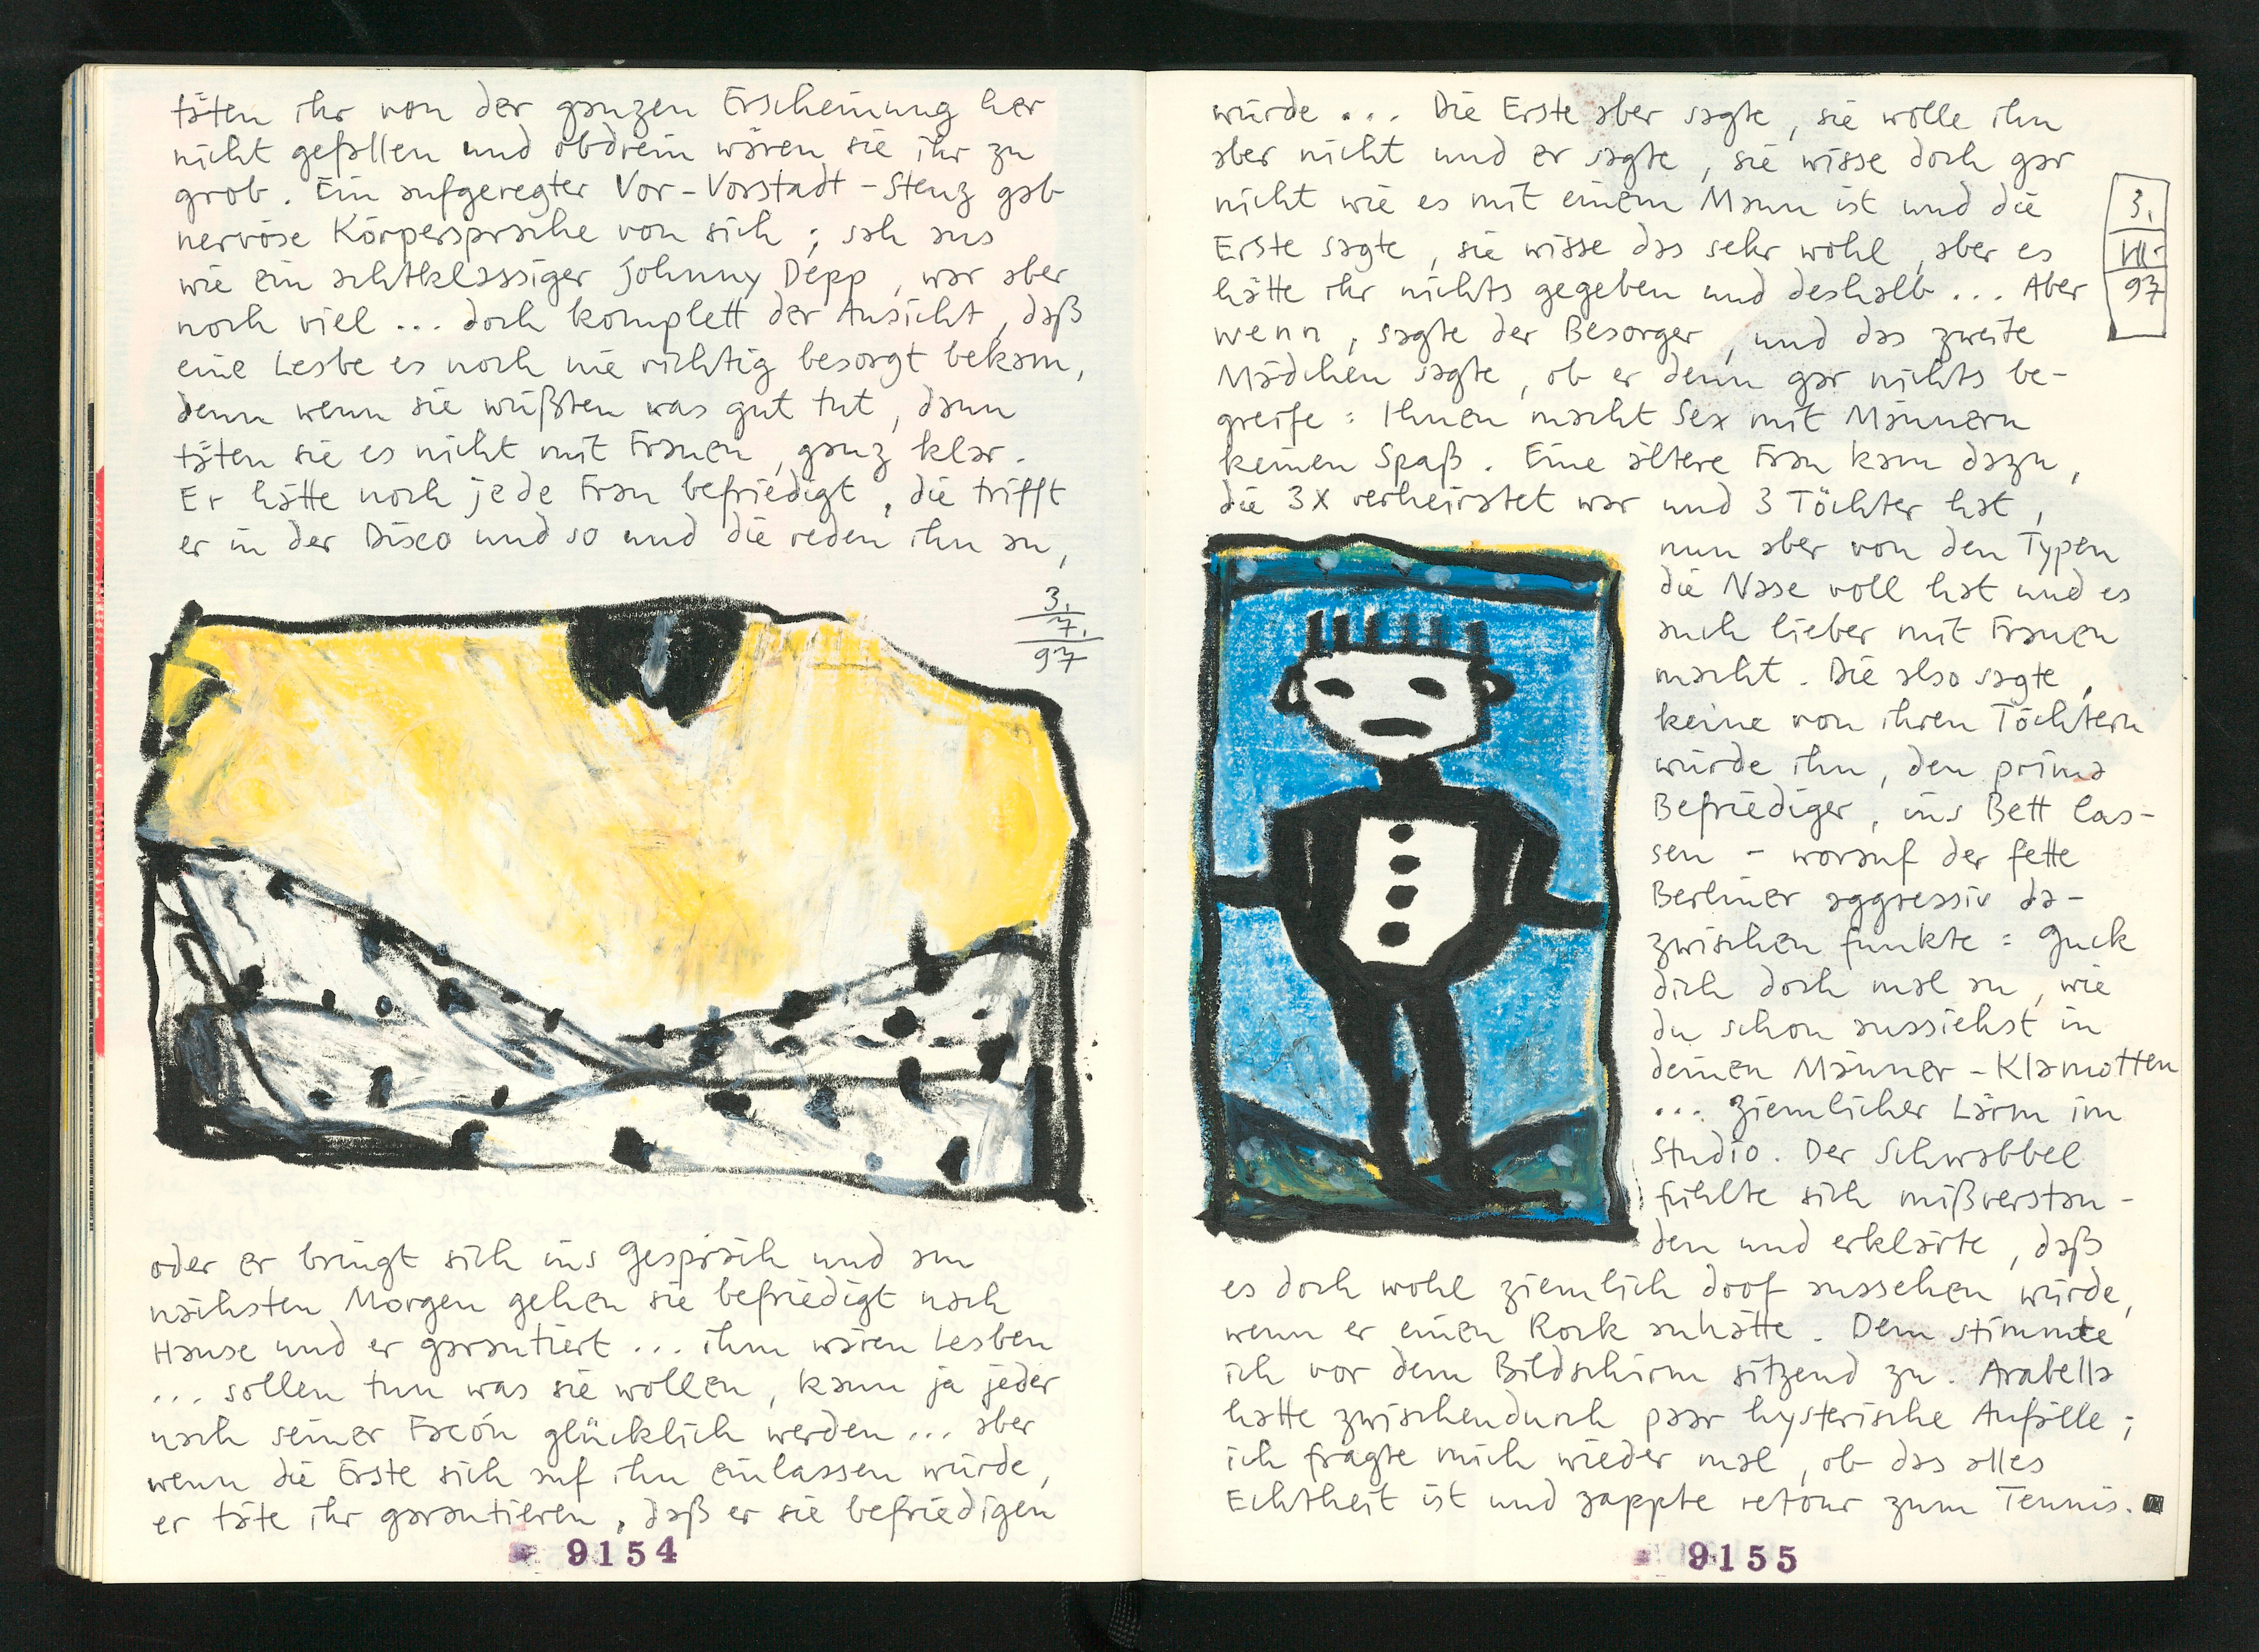 täten ihr von der ganzen Erscheinung her
nicht gefallen und obdrein wären sie ihr zu
grob. Ein aufgeregter Vor-Vorstadt-Stenz gab
nervöse Körpersprache von sich; sah aus
wie ein achtklassiger Johnny Depp, war aber
noch viel ... doch komplett der Ansicht, daß
eine Lesbe es noch nie richtig besorgt bekam,
denn wenn sie wüßten was gut tut, dann
täten sie es nicht mit Frauen, ganz klar.
Er hätte noch jede Frau befriedigt, die trifft
er in der Disco und so und die reden ihn an,
3.
7.
97
oder er bringt sich ins Gespräch und am
nächsten Morgen gehen sie befriedigt nach
Hause und er garantiert ... ihm wären Lesben
... sollen tun was sie wollen, kann ja jeder
nach seiner Facón glücklich werden ... aber
wenn die Erste sich auf ihn einlassen würde,
er täte ihr garantieren, daß er sie befriedigen
9154
würde ... Die Erste aber sagte, sie wolle ihn
aber nicht und er sagte, sie wisse doch gar
nicht wie es mit einem Mann ist und die
Erste sagte, sie wisse das sehr wohl, aber es
hätte ihr nichts gegeben und deshalb ... Aber
wenn, sagte der Besorger, und das zweite
Mädchen sagte, ob er denn gar nichts be-
greife: Ihnen macht Sex mit Männern
keinen Spaß. Eine ältere Frau kam dazu,
die 3x verheiratet war und 3 Töchter hat,
nun aber von den Typen
die Nase voll hat und es
auch lieber mit Frauen
macht. Die also sagte,
keine von ihren Töchtern
würde ihn, den prima
Befriediger, ins Bett las-
sen - worauf der fette
Berliner aggressiv da-
zwischen funkte: Guck
dich doch mal an, wie
du schon aussiehst in
deinen Männer-Klamotten
... ziemlicher Lärm im
Studio. Der Schwabbel
fühlte sich mißverstan-
den und erklärte, daß
es doch wohl ziemlich doof aussehen würde,
wenn er einen Rock anhätte. Dem stimmte
ich vor dem Bildschirm sitzend zu. Arabella
hatte zwischendurch paar hysterische Anfälle;
ich fragte mich wieder mal, ob das alles
Echtheit ist und zappte retour zum Tennis.
3.
VII.
97
9155